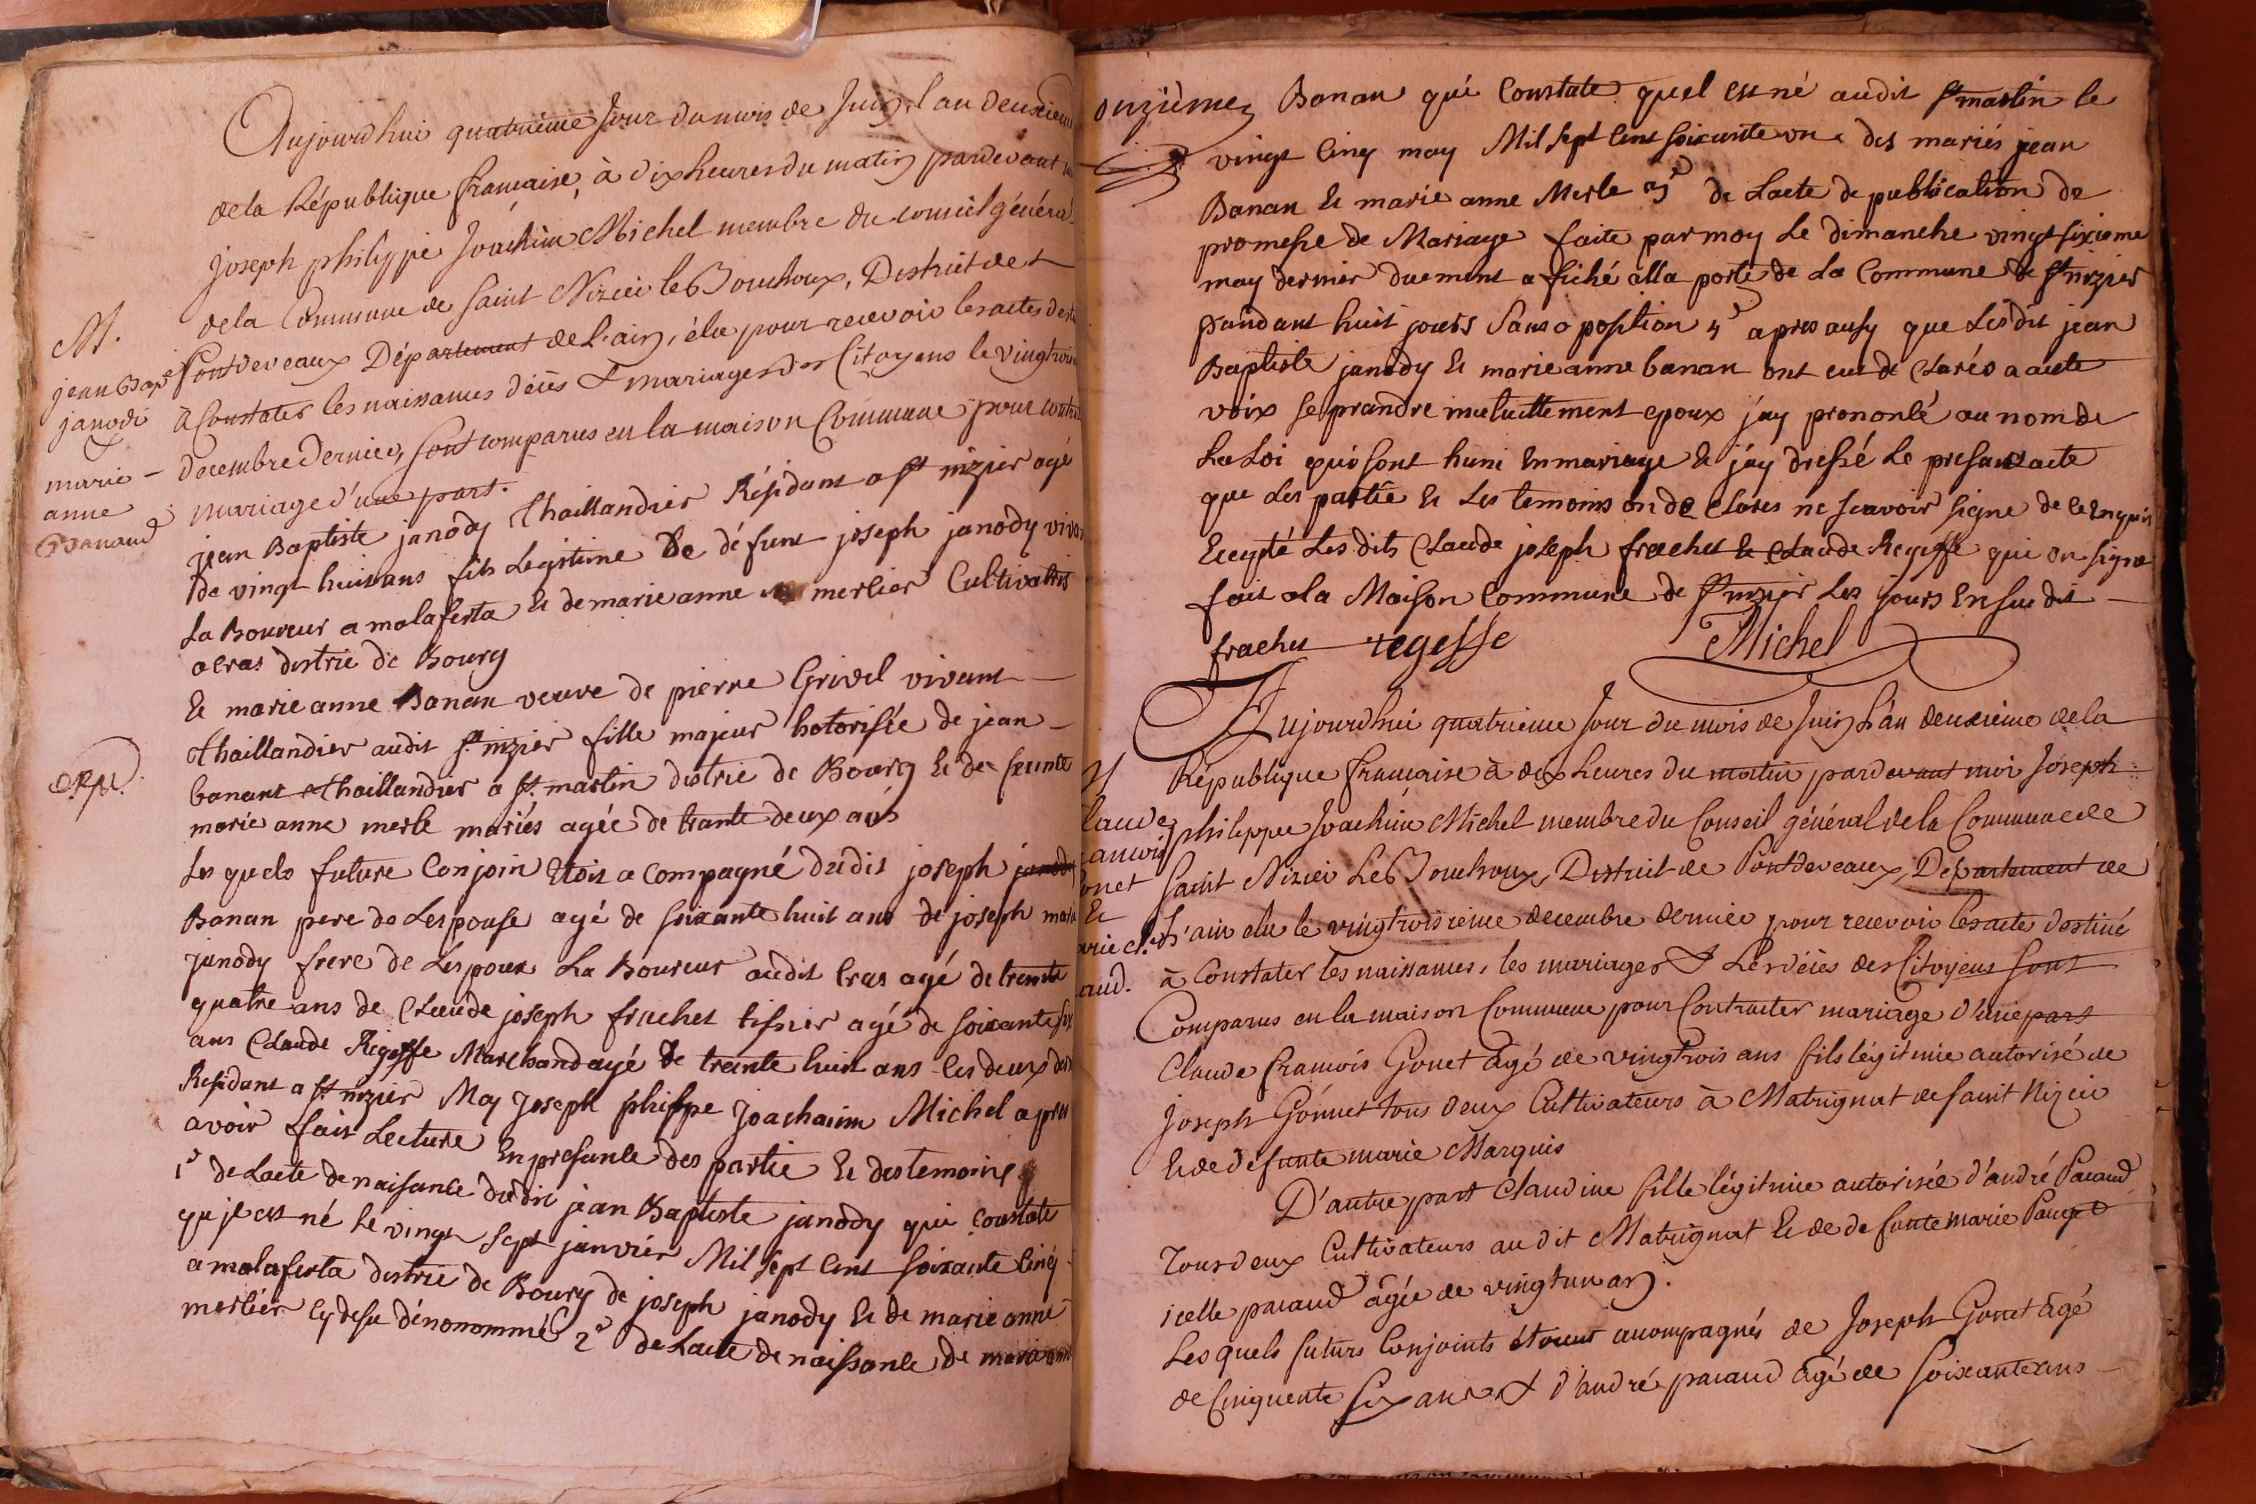 Aujourd'hui quatrieme Jour du mois de Juin, l'an deuxieme
de la République francaise, à dix heures du matin pardevant
Joseph philippe Joachim Michel membre du conseil général
de la Commune de Saint Nizier le Bouchoux, District de
Pontdeveaux Département de L'ain, élu pour recevoir les actes
à Constater les naissances déces & mariages des Citoyens le vingt
decembre dernier, sont comparus en la maison Commune pour
mariage d'une part.
M.
jean Bap.te
janodi
&
marie
anne
Banand
jean Baptiste janody Thaillandier Résidant a st nizier agé
de vingt huit ans fils Legitime De défunt joseph janody
La Boureur a malaferta & de marie anne merlier Cultivatris
a Cras distric de Bourg
& marie anne Banan veuve de pierre Grivel vivant
Thaillandier audit st nizier fille majeur hotorisée de jean
banant Thaillandier a st martin distric de Bourg & de feunte
marie anne merle mariés agée de trante deux ans
Les quels future Conjoin Etois a Compagné dudit joseph
Banan pere de Lespouse agé de soixante huit ans de joseph
janody frere de Lespoux La Boureur audit Cras agé de trente
quatre ans de Claude joseph frachet tissier agé de soixante
ans Claude Regeffe Marchand agé de trente huit ans les deux
Residant a st nizier Moy Joseph philippe Joachaim Michel apres
avoir fait Lecture En presance des partie & des temoins
1° de Lacte de naisance dudit jean Baptiste janody qui Constate
qu je est né le vingt sept janvier Mil sept cent soixante cinq
a malaferta distric de Bourg de joseph janody & de marie anne
merlier cy desu dénonommé 2° de Lacte de naissance de marie anne
onzieme
Banan qui Constate quel est né audit st martin le
vingt cinq may Mil sept cent soixante un des mariés jean
Banan & marie anne Merle 3° de Lacte de publication de
promesse de Mariage faite par moy Le dimanche vingt sixieme
may dernier duement a fiché a lla porte de La Commune de st nizier
pandant huit jours sans oposition 4° apres ausy que Lesdit jean
Baptiste janody & marie anne banan ont eut de Clarés a aute
voix se prandre mutuellement epoux jay prononcé au nom de
La Loi qui sont huni En mariage & jay dressé Le presant acte
que Les partie & Les temoins on de Clares ne scavoir signe de ce Enquis
Ecepté Lesdits Claude joseph frachet & Claude Regeffe qui on signe
fait a la Maison Commune de st nizier Les jours En sudit
frachet regeffe Michel
Aujourd'hui quatrieme Jour du mois de Juin L'an deuxieme de la
République francaise à dix heures du matin pardevant moi Joseph
philippe Joachim Michel membre du Conseil général de la Commune de
Saint Nizier Le Bouchoux, District de Pontdeveaux, Département de
L'ain elu le vingtroisieme decembre dernier pour recevoir les acte destiné
à Constater les naissances, les mariages & Les déces des Citoyens sont
Comparus en la maison Commune pour Contracter mariage d'une part
Claude francois Gonet âgé de vingtrois ans fils légitime autorisé de
Joseph Gonnet tous deux Cultivateurs à Matrignat de Saint Nizier
& de defunte marie Marquis
D'autre part Claudine fille légitime autorisée d'andré Pacaud
Tous deux Cultivateurs audit Matrignat & de defunte marie Pauget
icelle pacaud âgée de vingt un an.
Les quels futurs Conjoints étoient accompagnés de Joseph Gonet âgé
de Cinquante six ans & d'andré pacaud âgé de soixante ans